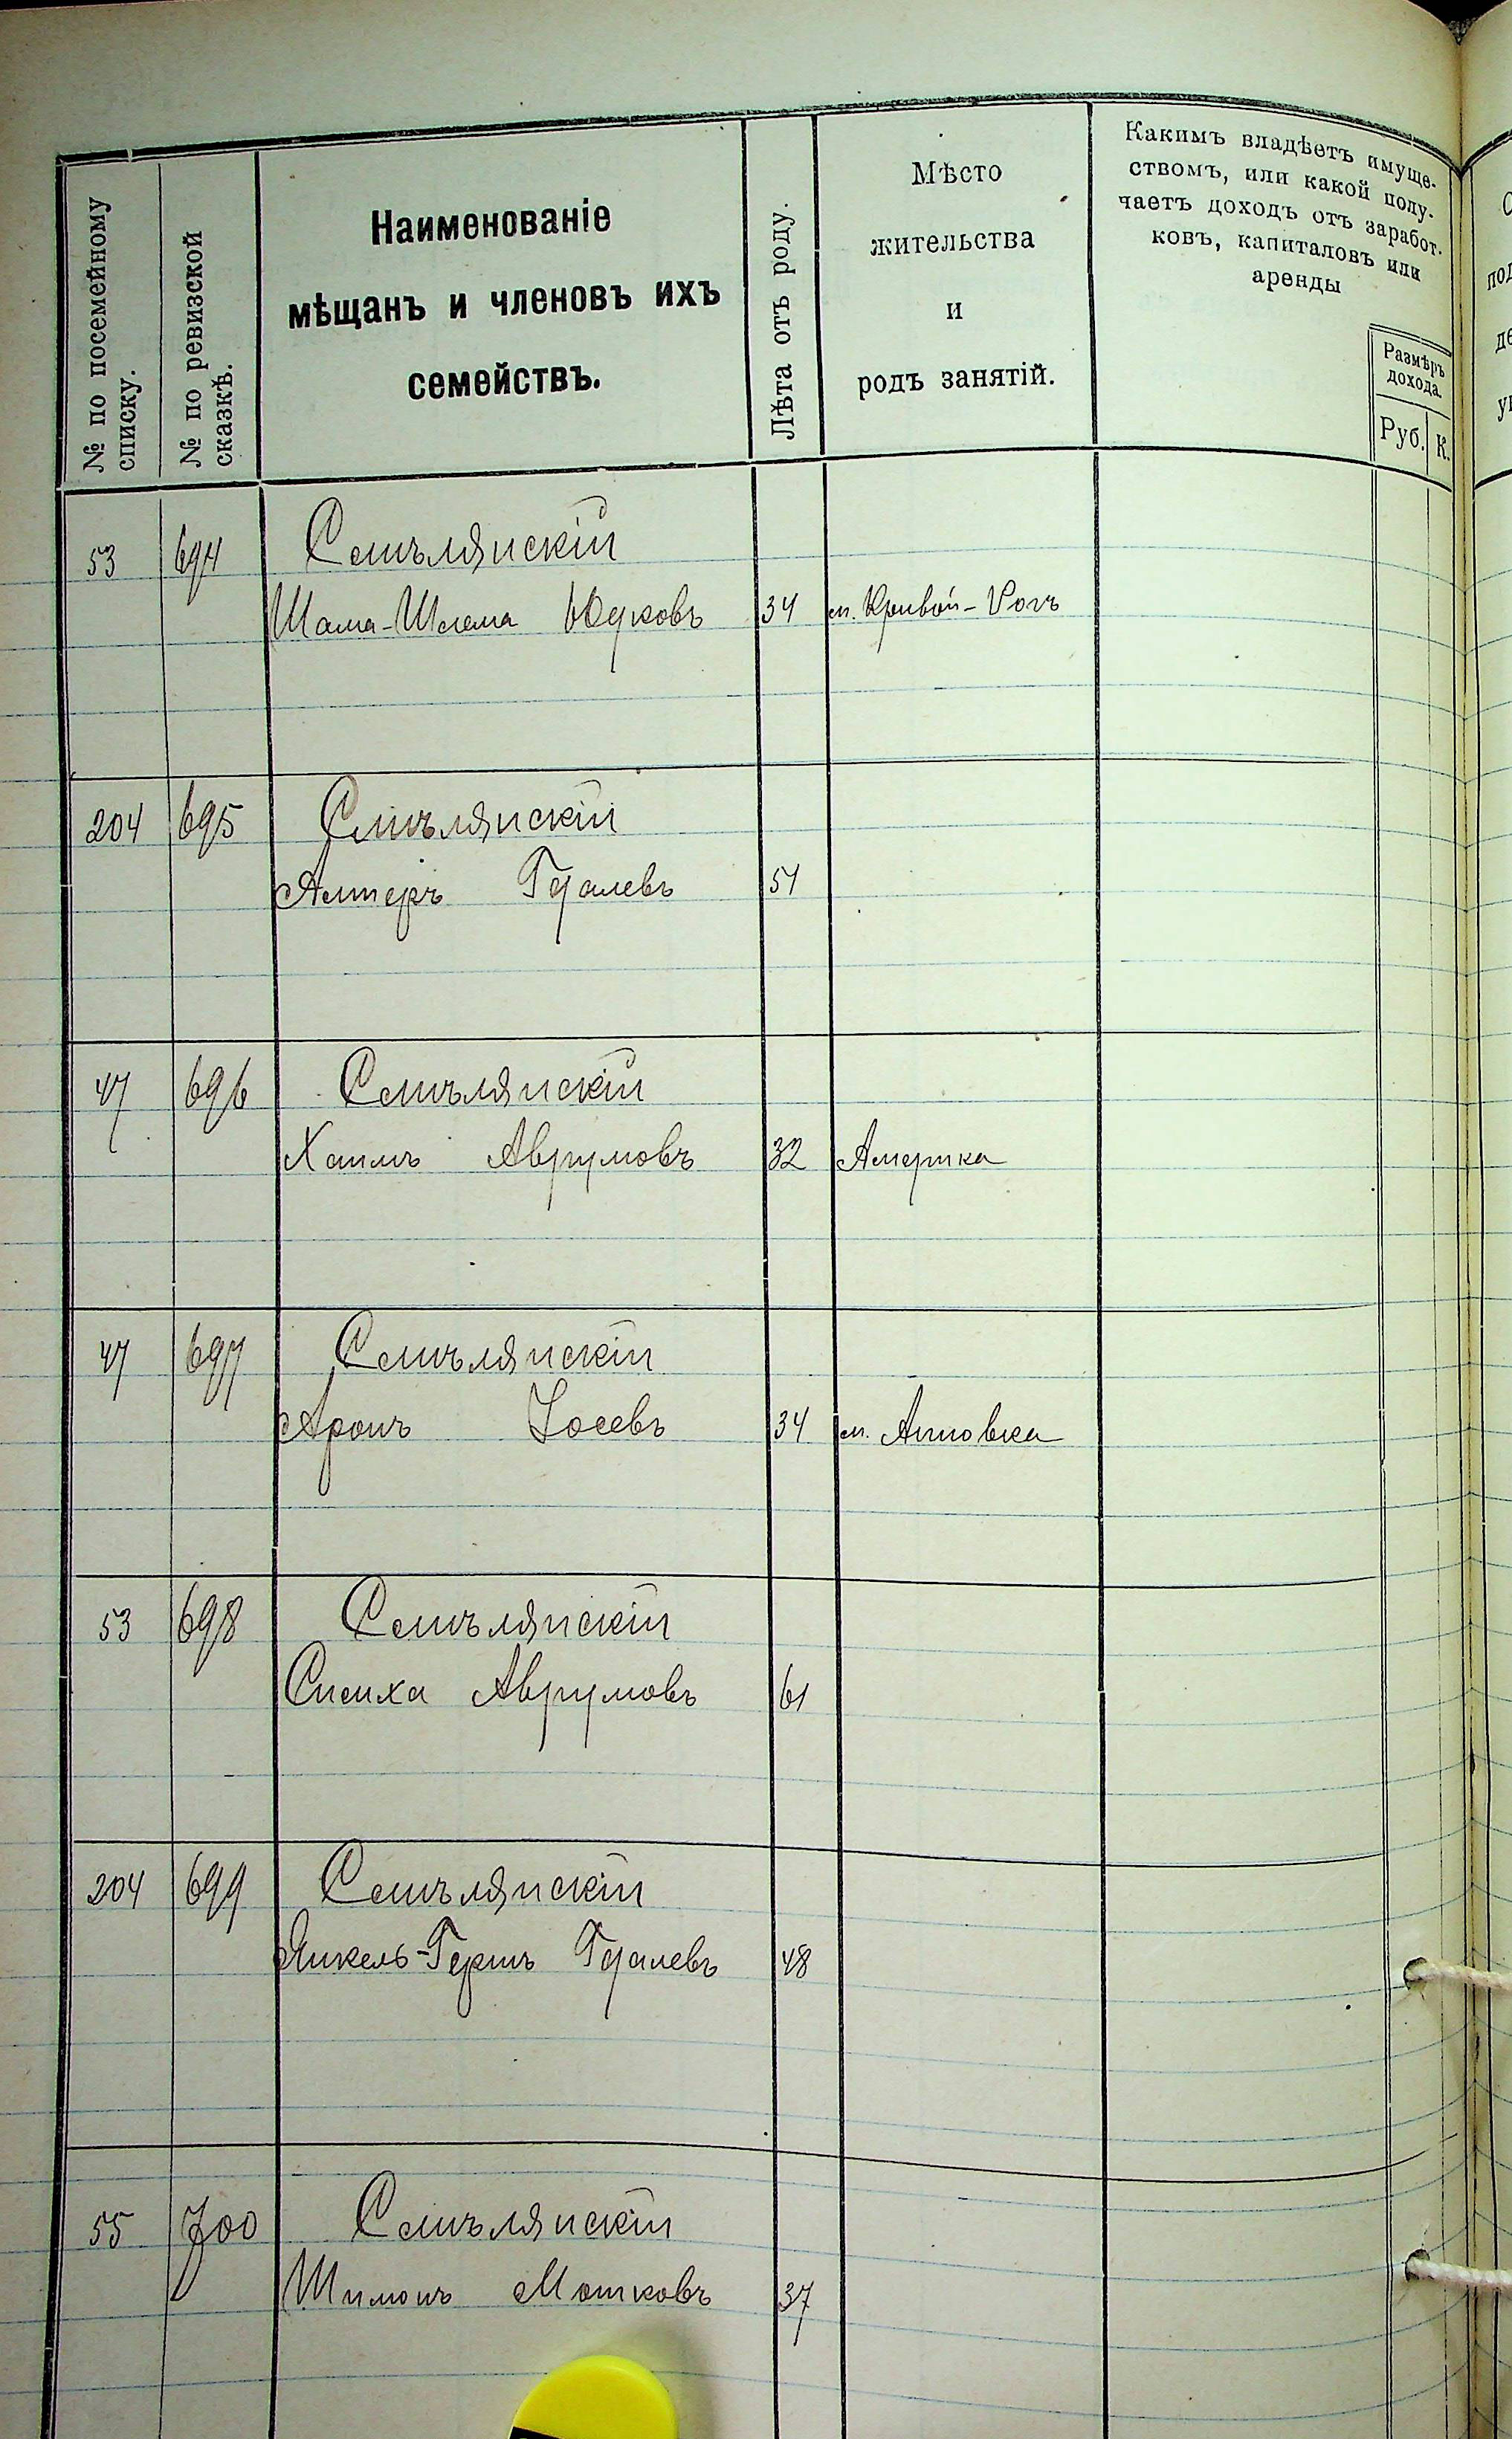 № по посемейному
списку.
№ по ревизской
сказкѣ.
Наименованіе
мѣщанъ и членовъ ихъ
семействъ.
Лѣта отъ роду.
Мѣсто
жительства
и
родъ занятій.
Какимъ владѣетъ имуще-
ствомъ, или какой полу-
чаетъ доходъ отъ заработ-
ковъ, капиталовъ или
аренды
Размѣръ
дохода.
Руб. К.
53 694 Смѣлянскій
Шама-Шлема Юдковъ 34 м. Кривой-Рогъ
204 695 Смѣлянскій
Алтеръ Гдалевъ 51
47 696 Смѣлянскій
Хаимъ Аврумовъ 32 Америка
47 697 Смѣлянскій
Аронъ Іосевъ 34 м. Анновка
53 698 Смѣлянскій
Симха Аврумовъ 61
204 699 Смѣлянскій
Янкель-Гершъ Гдалевъ 48
55 700 Смѣлянскій
Шимонъ Мошковъ 37